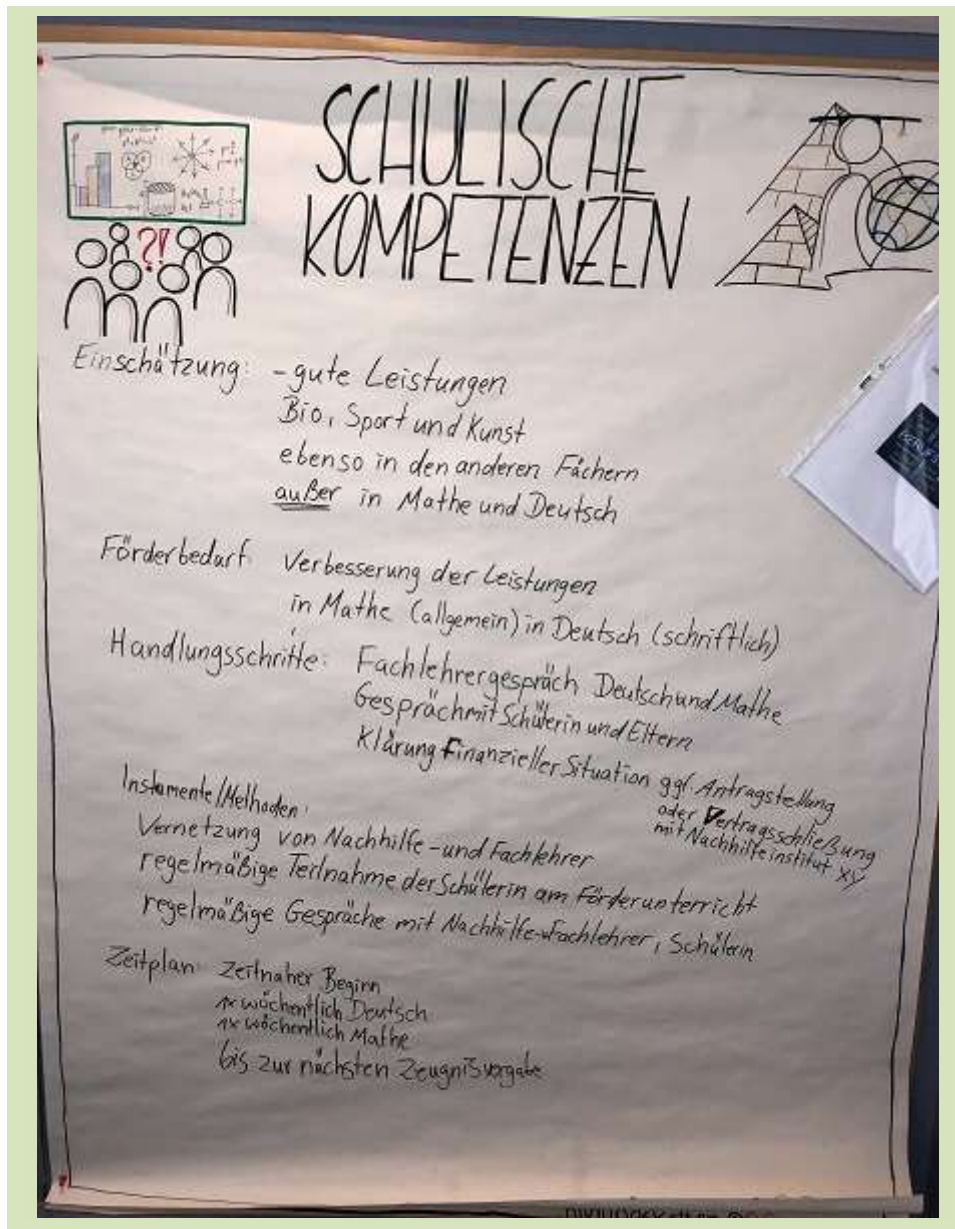 SCHULISCHE
KOMPETENZEN
?!
Einschätzung: - gute Leistungen
Bio, Sport und Kunst
ebenso in den anderen Fächern
außer in Mathe und Deutsch
Förderbedarf: Verbesserung der Leistungen
in Mathe (allgemein) in Deutsch (schriftlich)
Handlungsschritte: Fachlehrergespräch Deutsch und Mathe
Gespräch mit Schülerin und Eltern
Klärung Finanzieller Situation ggf. Antragstellung
oder Vertragsschließung
mit Nachhilfeinstitut XY
Instumente/Methoden:
Vernetzung von Nachhilfe- und Fachlehrer
regelmäßige Teilnahme der Schülerin am Förderunterricht
regelmäßige Gespräche mit Nachhilfe-Fachlehrer, Schülerin
Zeitplan: Zeitnaher Beginn
1x wöchentlich Deutsch
1x wöchentlich Mathe
bis zur nächsten Zeugnisvorgabe